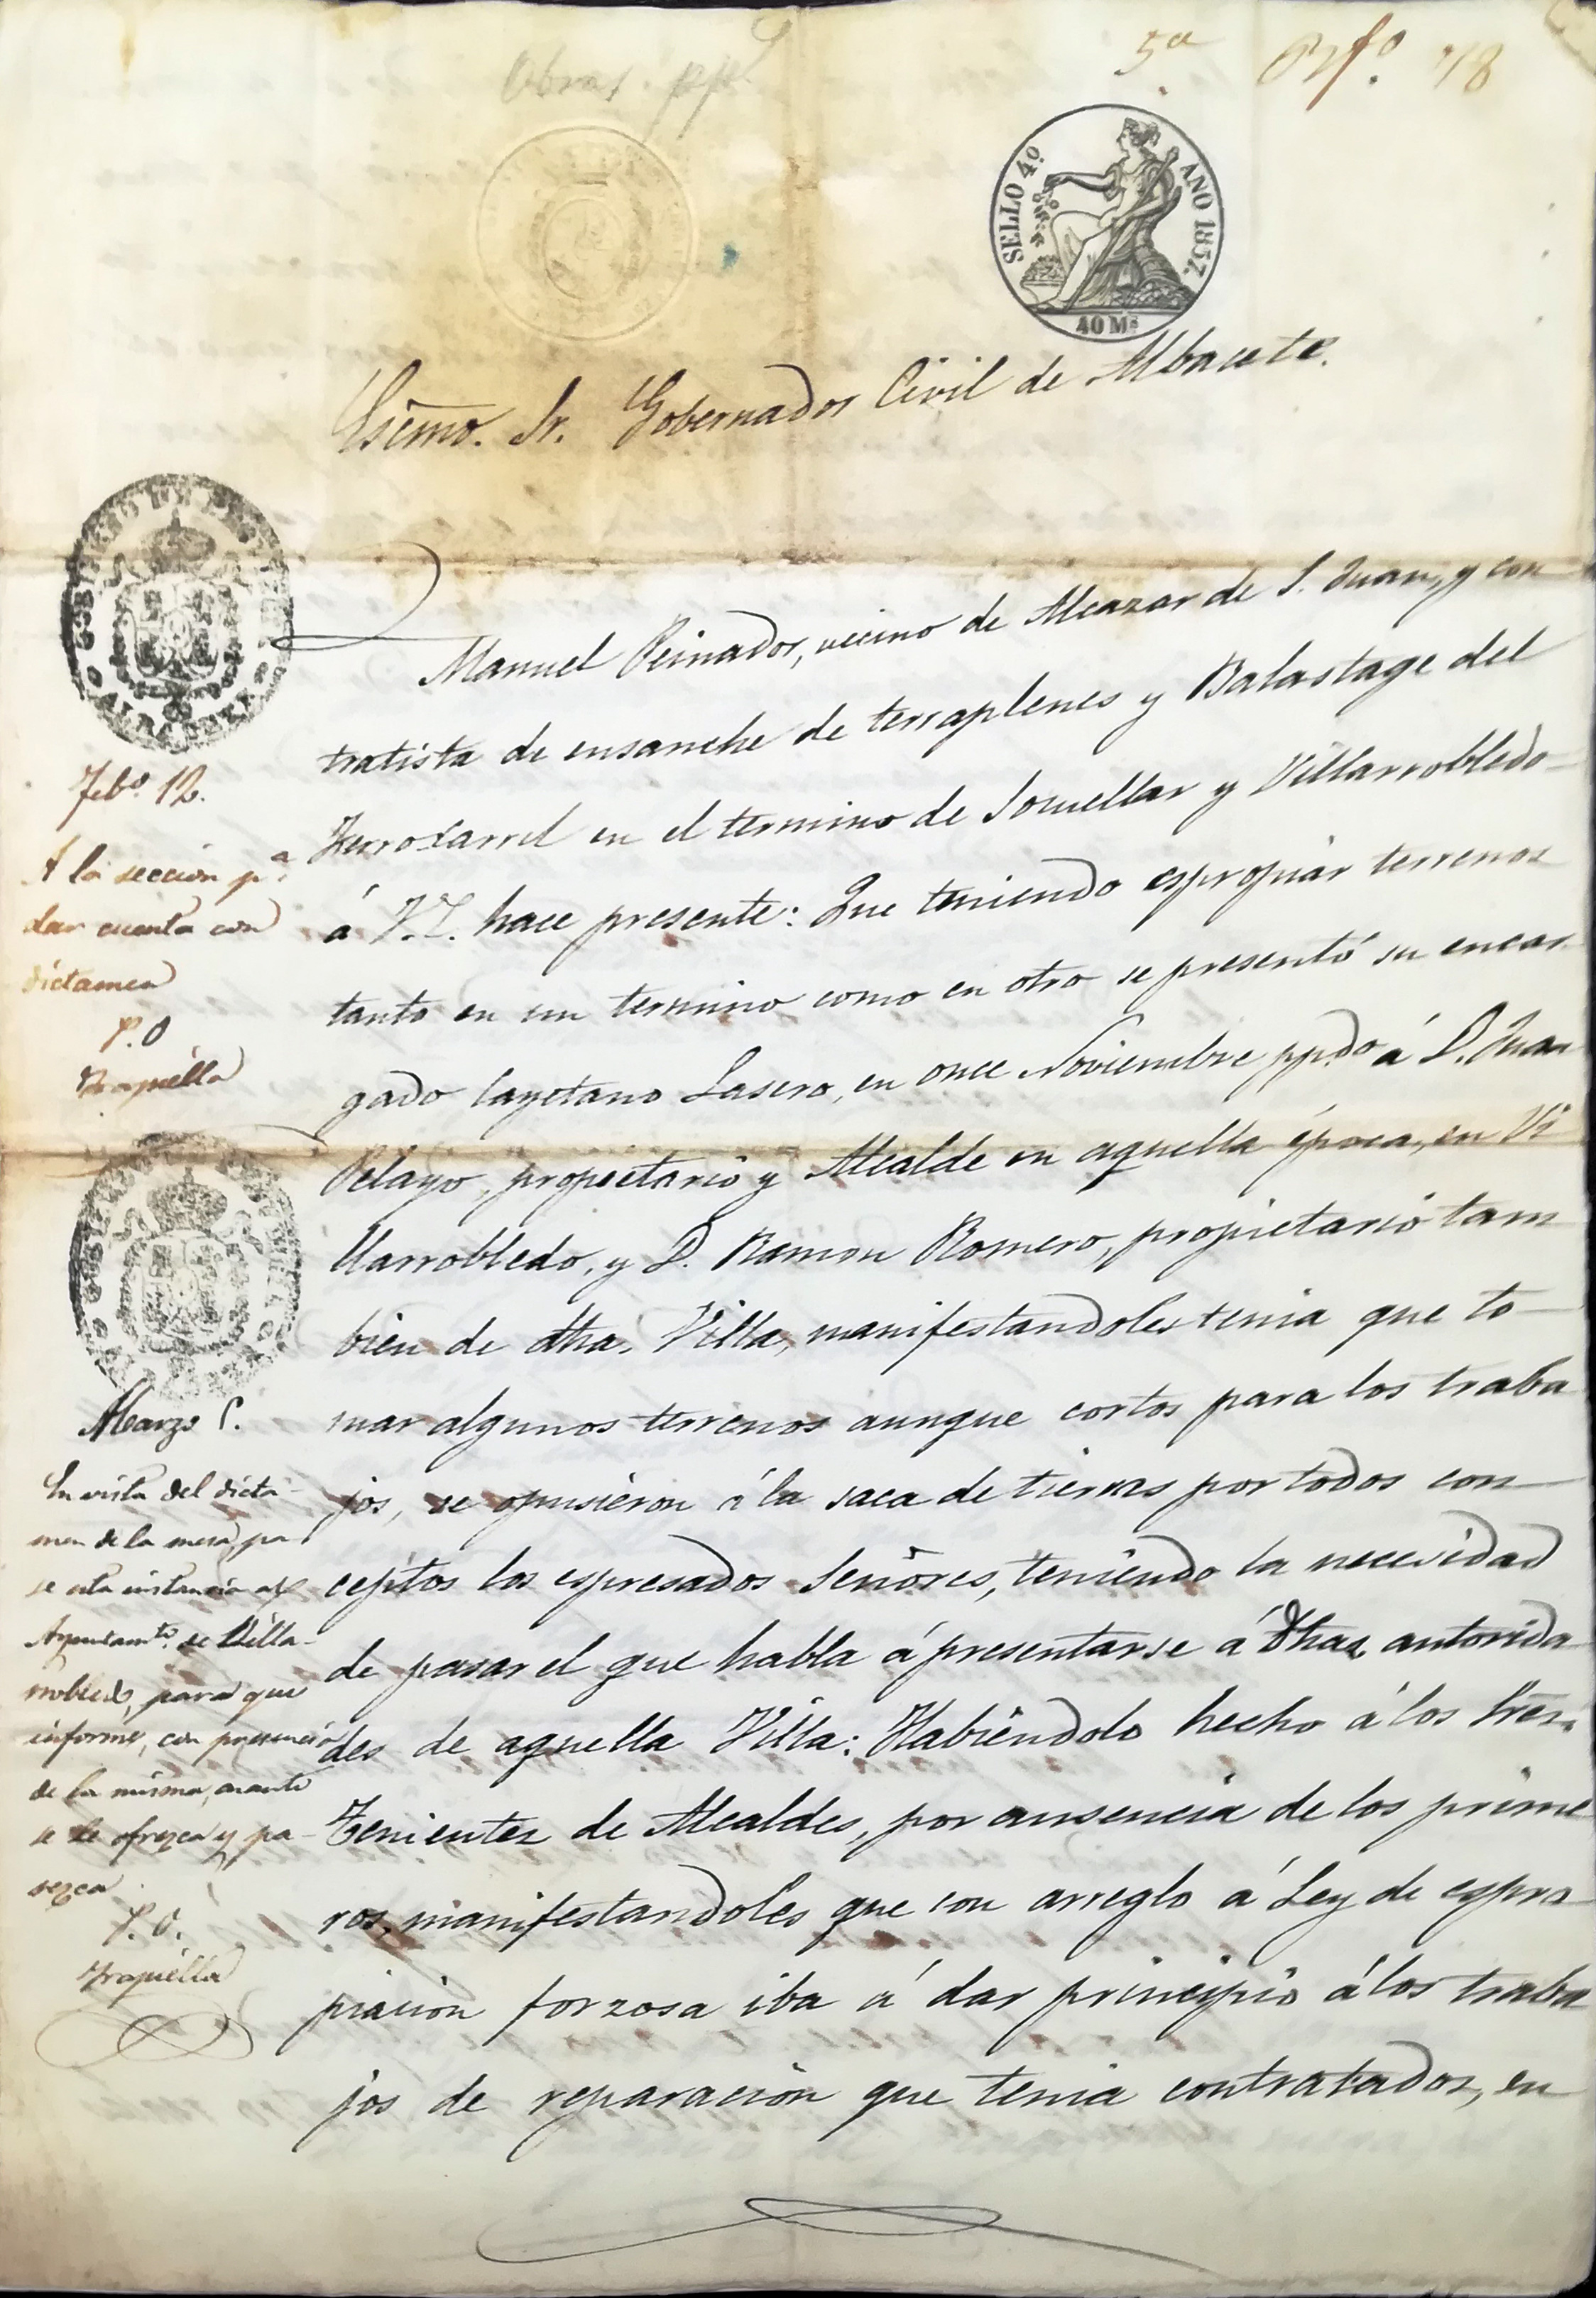 Obras pp.
5ª
SELLO 4º.
AÑO 1857.
40 Ms
Esemo. Sr. Gobernador Civil de Albacete.
GOBIERNO DE PROVINCIA
Manuel Peinador, vecino de Alcazar de S. Juan, y con
tratista de ensanche de terraplenes y Balastage del
Ferrocarril en el termino de Socuellar y Villarrobledo
á V.I. hace presente: Que teniendo espropiar terrenos
tanto en un termino como en otro se presentó su encar
gado Cayetano Lasero, en once Noviembre ppdo á D. Juan
Pelayo, propietario y Alcalde en aquella época, en Vi
llarrobledo, y D. Ramon Romero, propietario tam
bien de dha. Villa, manifestandoles tenia que to
mar algunos terrenos aunque cortos para los traba
jos, se opusieron á la saca de tierras por todos con
ceptos los espresados Señores, teniendo la necesidad
de pasar el que habla á presentarse á dhas autorida
des de aquella Villa: Habiéndolo hecho á los tres
Tenientes de Alcaldes, por ausencia de los prime
ros, manifestandoles que con arreglo á Ley de espro
piacion forzosa iba á dar principio á los traba
jos de reparacion que tenia contratados, en
Febº. 12.
A la seccion pª.
dar cuenta con
dictamen
P.O
Marzo
En vista del dicta-
men de la mesa, pa
se esta instancia al
Ayuntamtº. de Villa-
rrobledo, para que
informe, con presencia
de la misma, cuanto
se le ofrezca y pa-
rezca.
P.O.